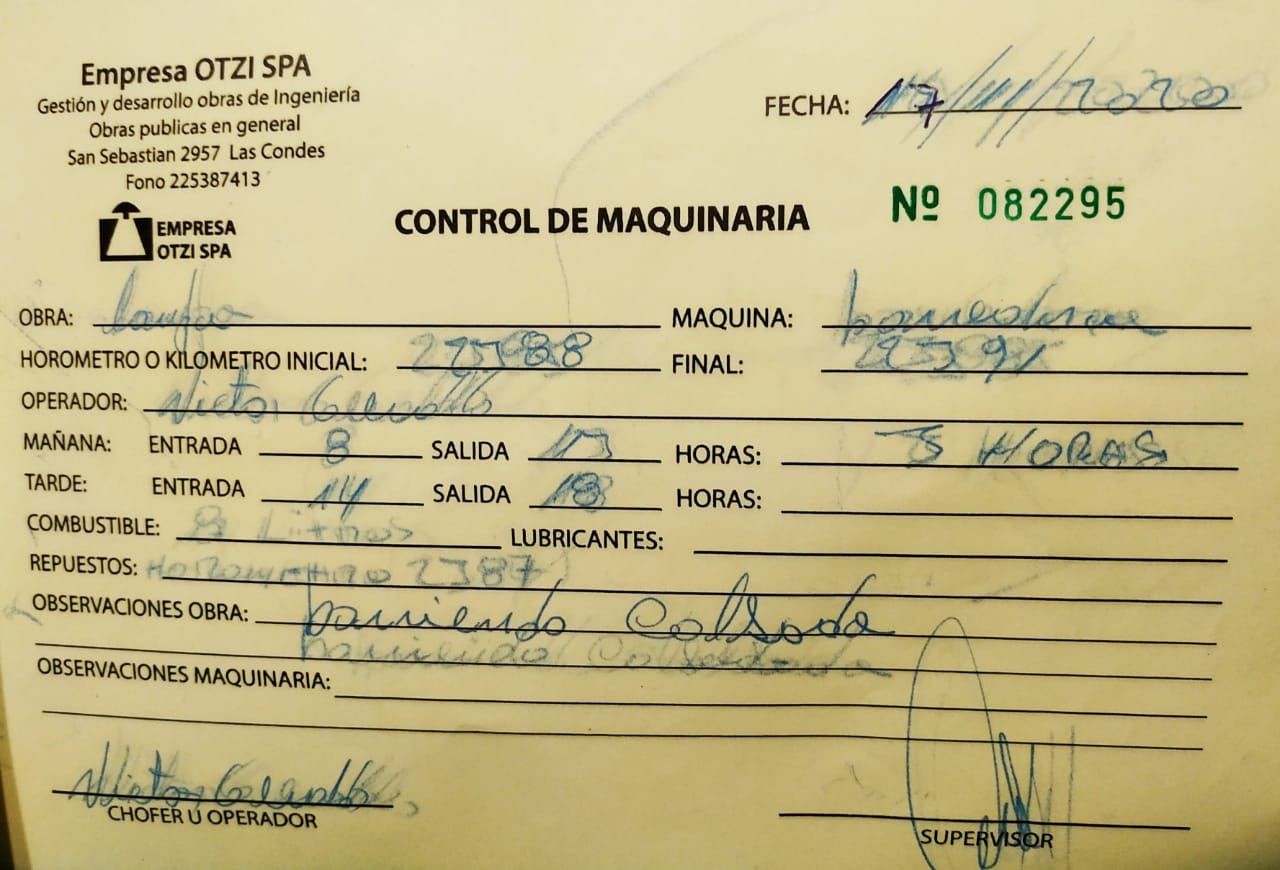 Empresa OTZI SPA
Gestión y desarrollo obras de Ingeniería
Obras publicas en general
San Sebastian 2957 Las Condes
Fono 225387413
EMPRESA
OTZI SPA
FECHA: 17/11/2020
CONTROL DE MAQUINARIA
Nº 082295
OBRA: Lampa MAQUINA:
HOROMETRO O KILOMETRO INICIAL: FINAL:
OPERADOR: Victor
MAÑANA: ENTRADA 8 SALIDA 13 HORAS: 3 HORAS
TARDE: ENTRADA 14 SALIDA 18 HORAS:
COMBUSTIBLE: 8 Litros LUBRICANTES:
REPUESTOS: Horometro 2387
OBSERVACIONES OBRA: barriendo Calsada
barriendo
OBSERVACIONES MAQUINARIA:
Victor
CHOFER U OPERADOR
SUPERVISOR